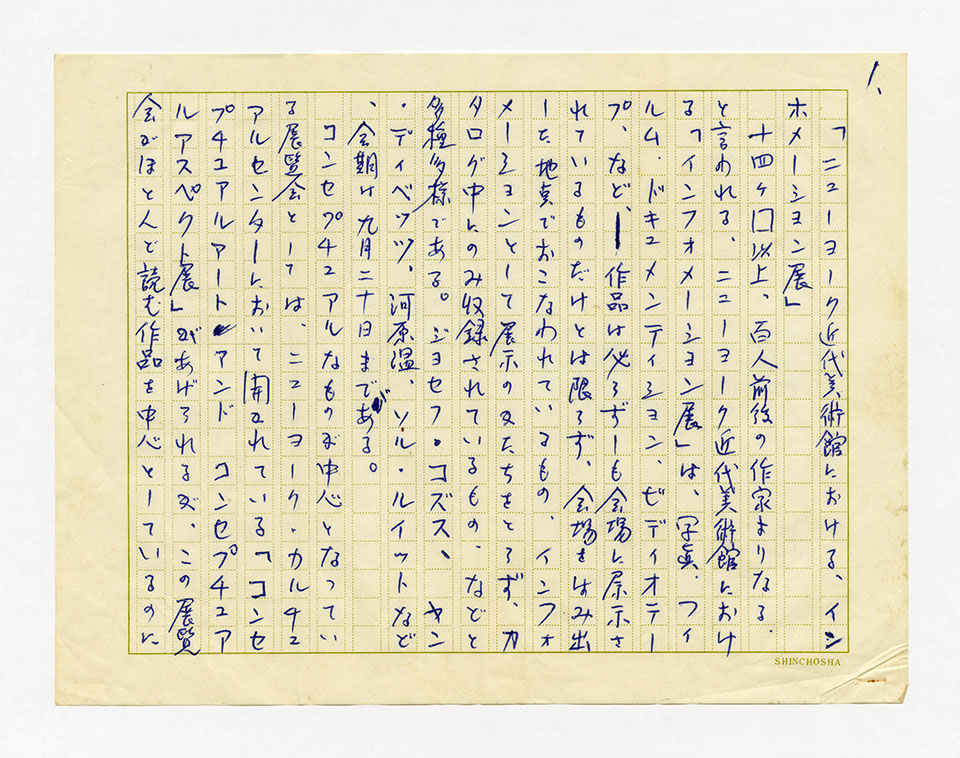 1.
「ニューヨーク近代美術館における、イン
ホメーション展」
十四ヶ口以上、百人前後の作家よりなる、
と言われる、ニューヨーク近代美術館におけ
る「インフォメーション展」は、写真、フィ
ルム・ドキュメンティション、ビディオテー
プ、など、作品は必らずしも会場に展示さ
れているものだけとは限らず、会場をはみ出
した地点でおこなわれているもの、インフォ
メーションとして展示のかたちをとらず、カ
タログ中にのみ収録されているもの、などと
多種多様である。ジョセフ・コズス、ヤン
・ディベッツ、河原温、ソル・ルイットなど
、会期は九月二十日まである。
コンセプチュアルなものが中心となってい
る展覧会としては、ニューヨーク・カルチュ
アルセンターにおいて開かれている「コンセ
プチュアルアート アンド コンセプチュア
ルアスペクト展」があげられるが、この展覧
会がほとんど読む作品を中心としているのに
SHINCHOSHA